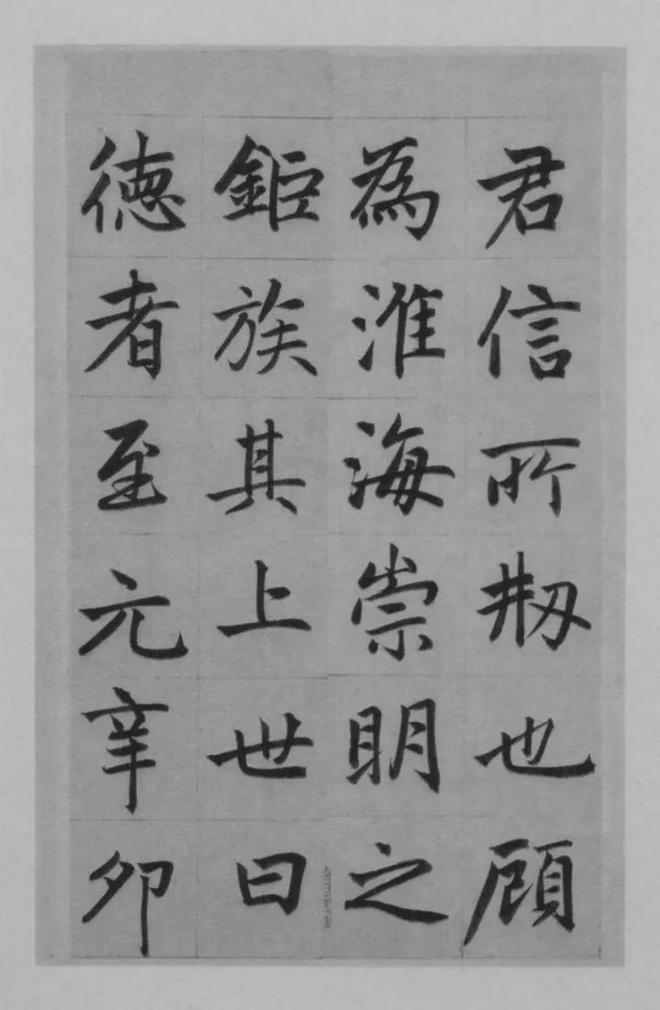 君信所刱也顧
為淮海崇明之
鉅族其上世曰
德者至元辛卯